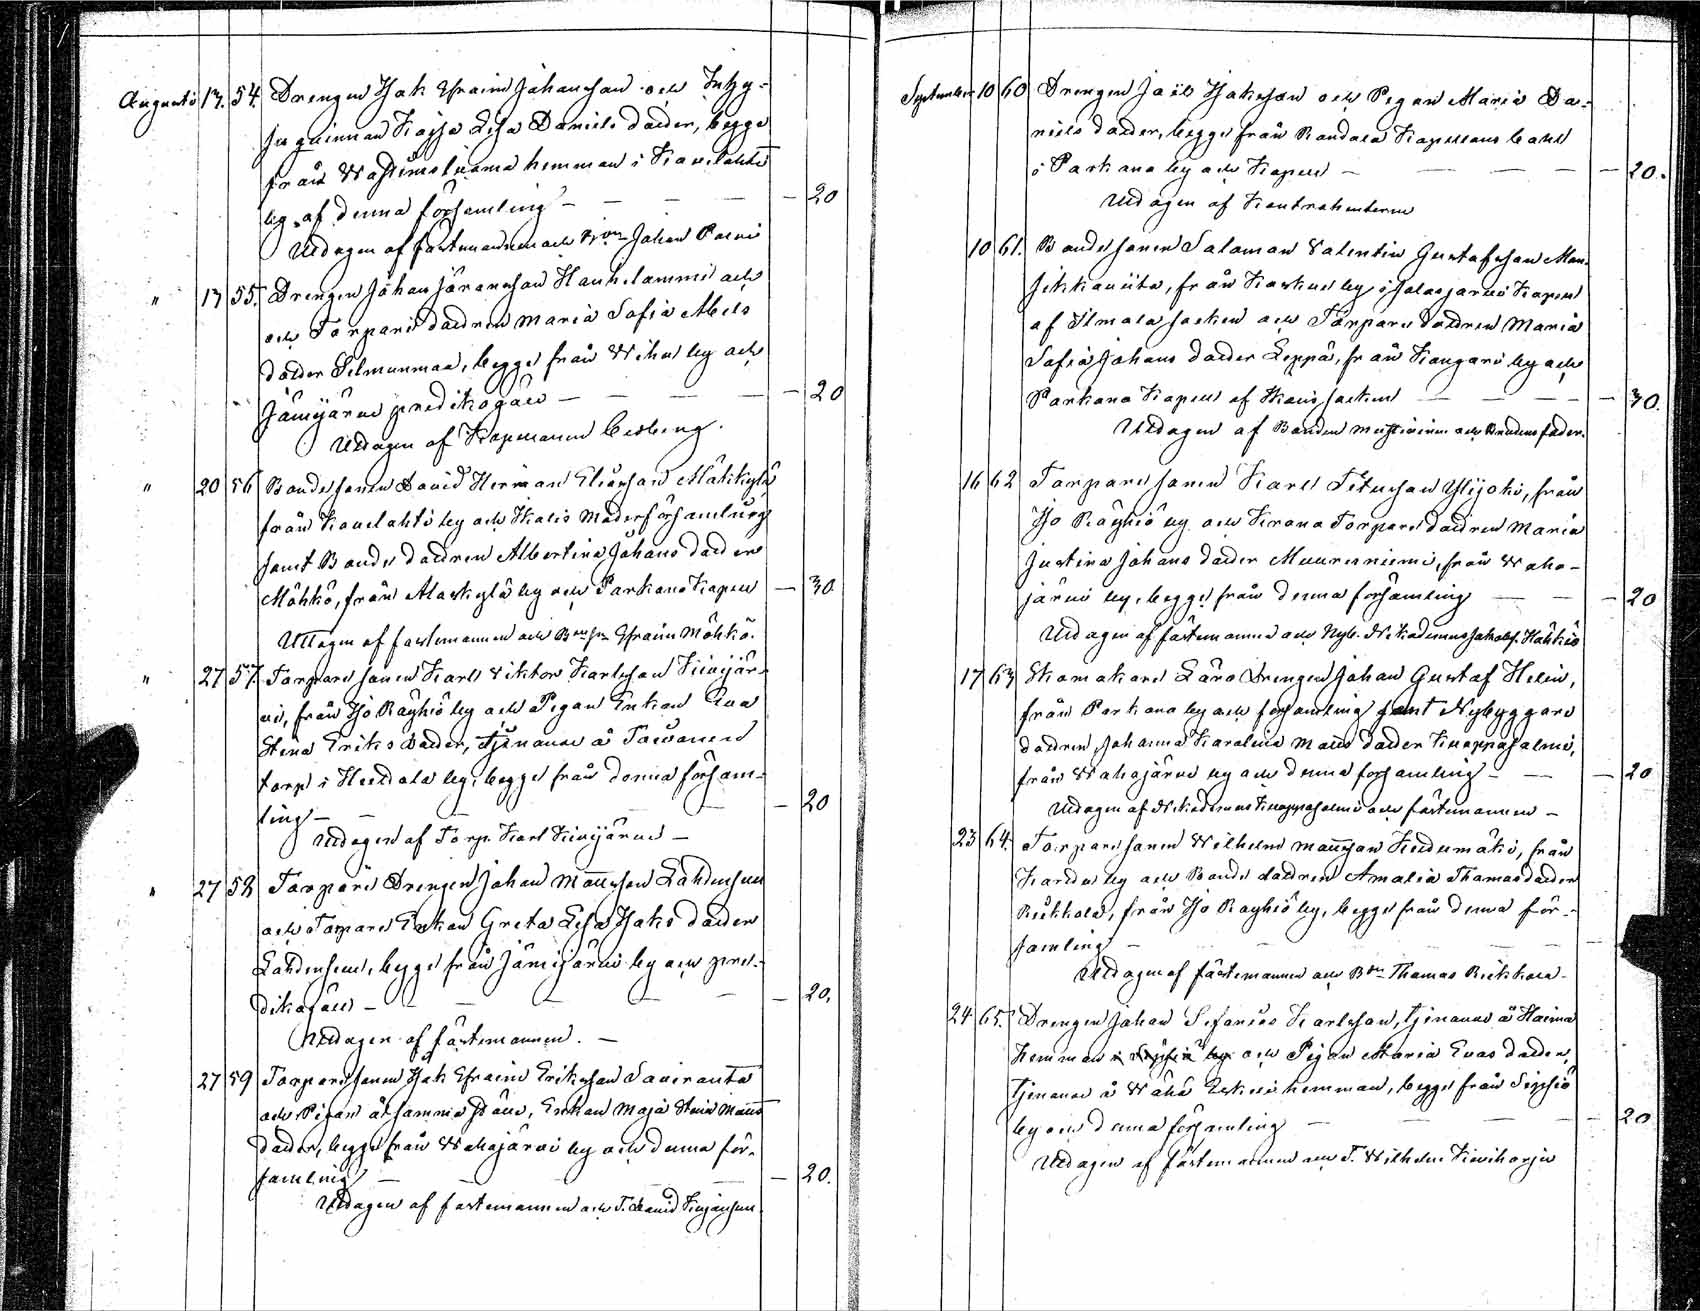 Augusti 13. 54. Drengen Isak Efraim Johansson och Inhy-
ses quinnan Kajsa Lisa Daniels dotter, begge
från hemman i Kovelahti
by af denna församling — 20
Uttagen af fästemannen och Johan
" 13 55. Drengen Johan Järansson Hanhilammi och
och Torpare dottren Maria Sofia Abels
dotter Silmunmaa, begge från Wihu by och
Jämijärvi predikogäll — 20
Uttagen af Kapellanen
" 20 56 Bonde sonen David Herman Eliasson Mäkikylä
från Kovelahti by och Ikalis Moderförsamling
samt Bonde dottren Albertina Johans dotter
Möhkö, från Alaskylä by och Parkano Kapell — 30
Uttagen af fästemannen och Efraim Möhkö.
" 27 57. Torpare sonen Karl Viktor Karlsson Kivijär-
vi, från Iso Röyhiö by och Pigan Enkan Eva
Stina Eriks dotter, tjenande å
torp i Heittola by, begge från denna försam-
ling — 20
Uttagen af Torp. Karl Kivijärvi —
" 27 58 Torpare Drengen Johan Matsson Lähdensuu
och Torpare Enkan Greta Lisa Isaks dotter
Lähdensuu, begge från Jämijärvi by och pre-
dikogäll — 20.
Uttagen af fästemannen. —
27 59 Torpare sonen Isak Efraim Eriksson Saviranta
och Pigan å samma ställe, Enkan Maja Stina Matts
dotter, begge från Wahojärvi by och denna för-
samling — 20.
Uttagen af fästemannen och T. David
September 10 60 Drengen Joel Isaksson och Pigan Maria Da-
niels dotter, begge från Kapellans boställ
i Parkano by och Kapell — 20.
Uttagen af Kontrahenterne
10 61. Bonde sonen Salomon Valentin Gustafsson Man-
sikkaniita, från Koskue by i Jalasjärvi Kapell
af Ilmola socken och Torpare dottren Maria
Sofia Johans dotter Leppä, från Kangari by och
Parkano Kapell af Ikalis socken — 30.
Uttagen af Bonden och Brudens fader.
16 62 Torpare sonen Karl Titusson Ylijoki, från
Iso Röyhiö by och Krono Torpare dottren Maria
Justina Johans dotter Muurinniemi, från Waho-
järvi by, begge från denna församling — 20
Uttagen af fästemannen och Nyb. Nikodemus Jakobss. Häkkiö
17 63 Skomakare Läro Drengen Johan Gustaf Helin,
från Parkano by och församling samt Nybyggare
dottren Johanna Karolina Matts dotter Knappasalmi,
från Wahojärvi by och denna församling — 20
Uttagen af Nikodemus Knappasalmi och fästemannen —
23 64. Torpare sonen Wilhelm Mattsson Kiidumäki, från
by och Bonde dottren Amalia Thomas dotter
Riikkola, från Iso Röyhiö by, begge från denna för-
samling —
Uttagen af fästemannen och Thomas Riikkola —
24 65. Drengen Johan Sefanias Karlsson, tjenande å Haima
hemman och Pigan Maria Evas dotter,
tjenande å Wähä hemman, begge från Sipsiö
by och denna församling — 20
Uttagen af fästemannen och T. Wilhelm Kiviharju